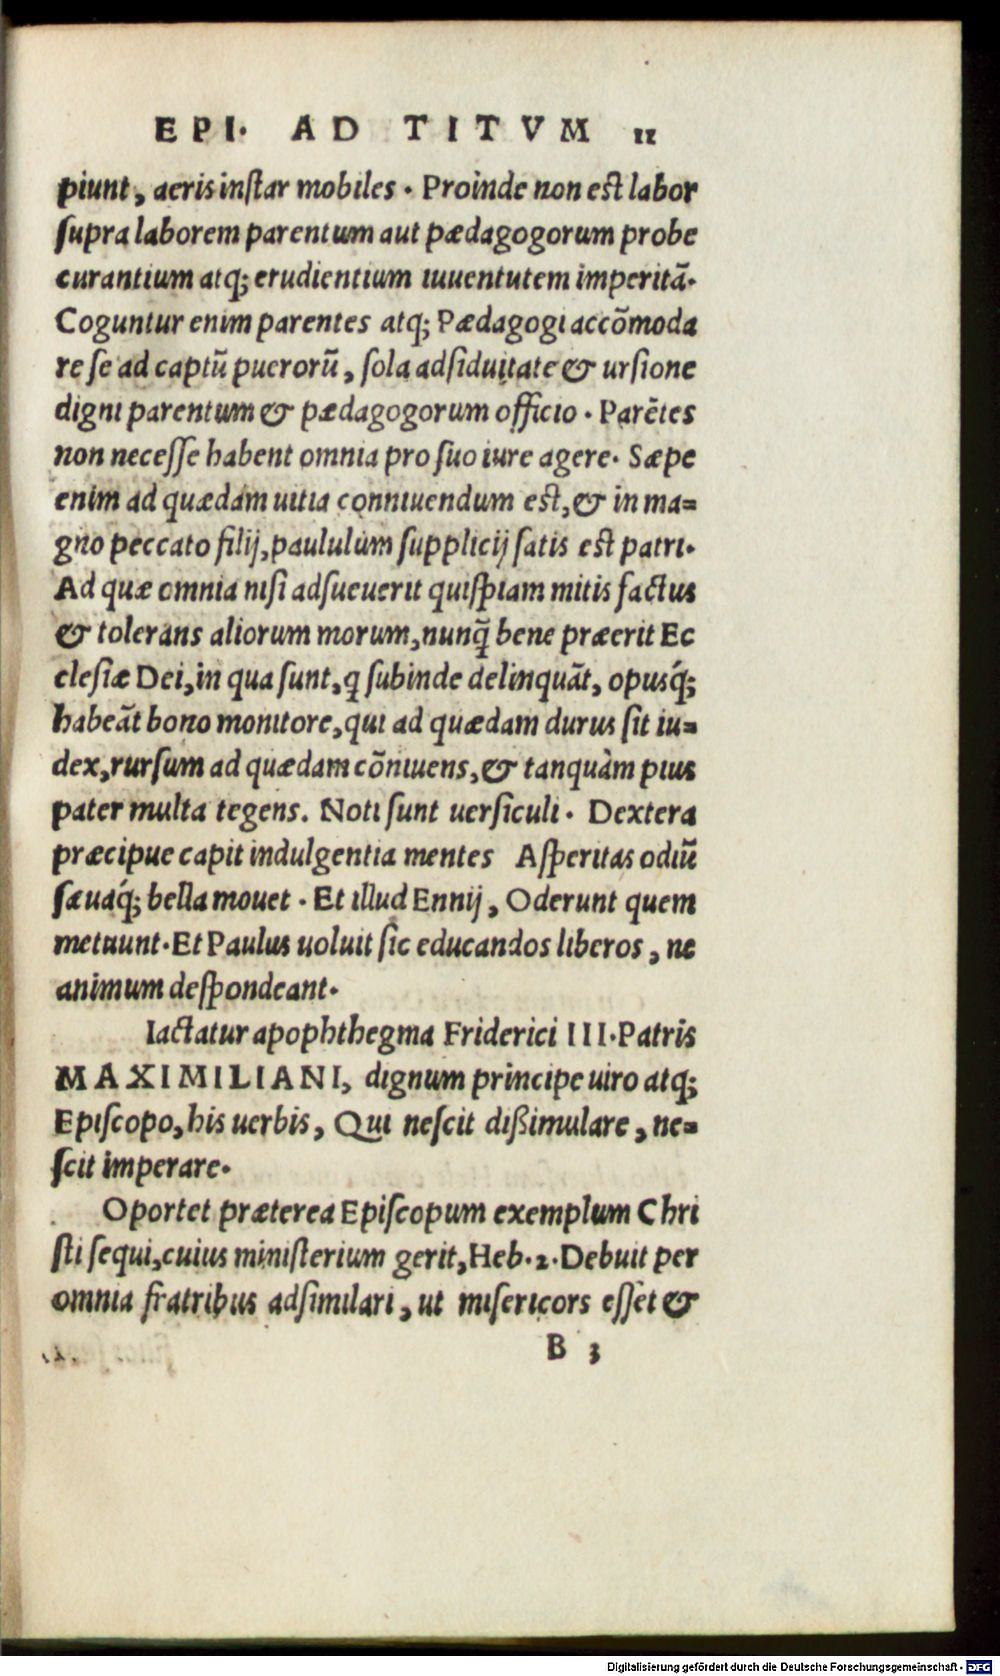 EPI. AD TITVM 11
piunt, aeris instar mobiles. Proinde non est labor
supra laborem parentum aut pædagogorum probe
curantium atq; erudientium iuuentutem imperitā.
Coguntur enim parentes atq; Pædagogi accōmoda
re se ad captū puerorū, sola adsiduitate & ursione
digni parentum & pædagogorum officio. Parētes
non necesse habent omnia pro suo iure agere. Sæpe
enim ad quædam uitia conniuendum est, & in ma=
gno peccato filij, paululùm supplicij satis est patri.
Ad quæ omnia nisi adsueuerit quispiam mitis factus
& tolerans aliorum morum, nunq̄ bene præerit Ec
clesiæ Dei, in qua sunt, q subinde delinquāt, opusq́;
habeāt bono monitore, qui ad quædam durus sit iu=
dex, rursum ad quædam cōniuens, & tanquàm pius
pater multa tegens. Noti sunt uersiculi. Dextera
præcipue capit indulgentia mentes Asperitas odiū
sæuaq́; bella mouet. Et illud Ennij, Oderunt quem
metuunt. Et Paulus uoluit sic educandos liberos, ne
animum despondeant.
Iactatur apophthegma Friderici III. Patris
MAXIMILIANI, dignum principe uiro atq;
Episcopo, his uerbis, Qui nescit dißimulare, ne=
scit imperare.
Oportet præterea Episcopum exemplum Chri
sti sequi, cuius ministerium gerit, Heb. 2. Debuit per
omnia fratribus adsimilari, ut misericors esset &
B 3
Digitalisierung gefördert durch die Deutsche Forschungsgemeinschaft - DFG